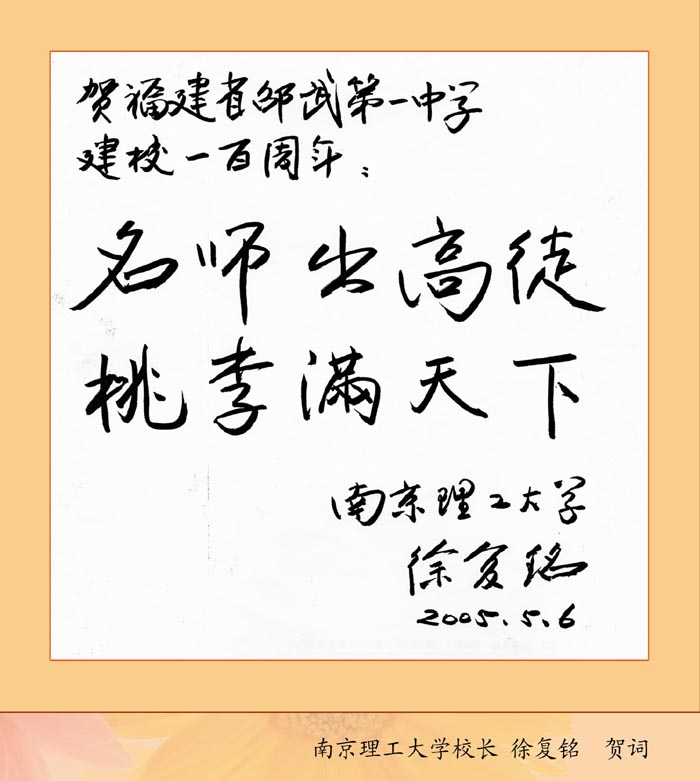 贺福建省邵武第一中学
建校一百周年：
名师出高徒
桃李满天下
南京理工大学
徐复铭
2005.5.6
南京理工大学校长 徐复铭 贺词